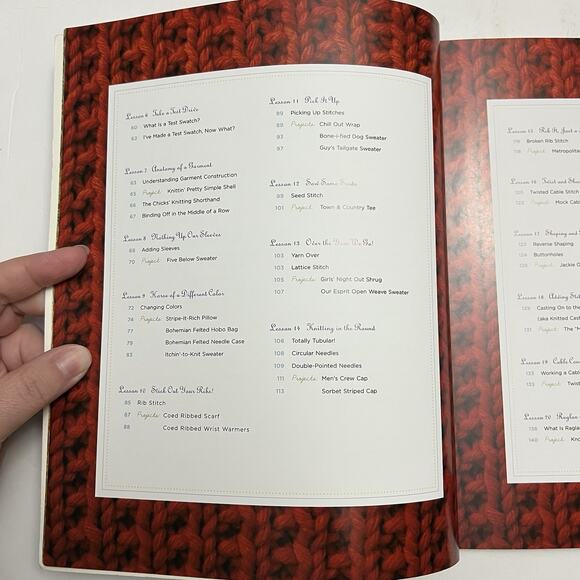 Lesson 6 Take a Test Drive
60 What Is a Test Swatch?
62 I've Made a Test Swatch, Now What?
Lesson 7 Anatomy of a Garment
63 Understanding Garment Construction
65 Project: Knittin' Pretty Simple Shell
66 The Chicks' Knitting Shorthand
67 Binding Off in the Middle of a Row
Lesson 8 Nothing Up Our Sleeves
68 Adding Sleeves
70 Project: Five Below Sweater
Lesson 9 Horse of a Different Color
72 Changing Colors
74 Projects: Stripe-It-Rich Pillow
77 Bohemian Felted Hobo Bag
79 Bohemian Felted Needle Case
83 Itchin'-to-Knit Sweater
Lesson 10 Stick Out Your Ribs!
85 Rib Stitch
87 Projects: Coed Ribbed Scarf
88 Coed Ribbed Wrist Warmers
Lesson 11 Pick It Up
89 Picking Up Stitches
89 Projects: Chill Out Wrap
93 Bone-i-fied Dog Sweater
97 Guy's Tailgate Sweater
Lesson 12 Sow Some
99 Seed Stitch
101 Project: Town & Country Tee
Lesson 13 Over the We Go!
103 Yarn Over
103 Lattice Stitch
105 Projects: Girls' Night Out Shrug
107 Our Esprit Open Weave Sweater
Lesson 14 Knitting in the Round
108 Totally Tubular!
108 Circular Needles
109 Double-Pointed Needles
111 Projects: Men's Crew Cap
113 Sorbet Striped Cap
Lesson 15 Rib It, Just a
118 Broken Rib Stitch
118 Project: Metropolit
Lesson 16 Twist and Shou
120 Twisted Cable Stitch
Project: Mock Cab
Lesson 17 Shaping and
123 Reverse Shaping
124 Buttonholes
Project: Jackie O
Lesson 18 Adding Stitc
129 Casting On to the
(aka Knitted Cast
131 Project: The "M
Lesson 19 Cable Conn
133 Working a Cabl
133 Project: Twist
Lesson 20 Raglan
138 What Is Ragla
140 Project: Kno